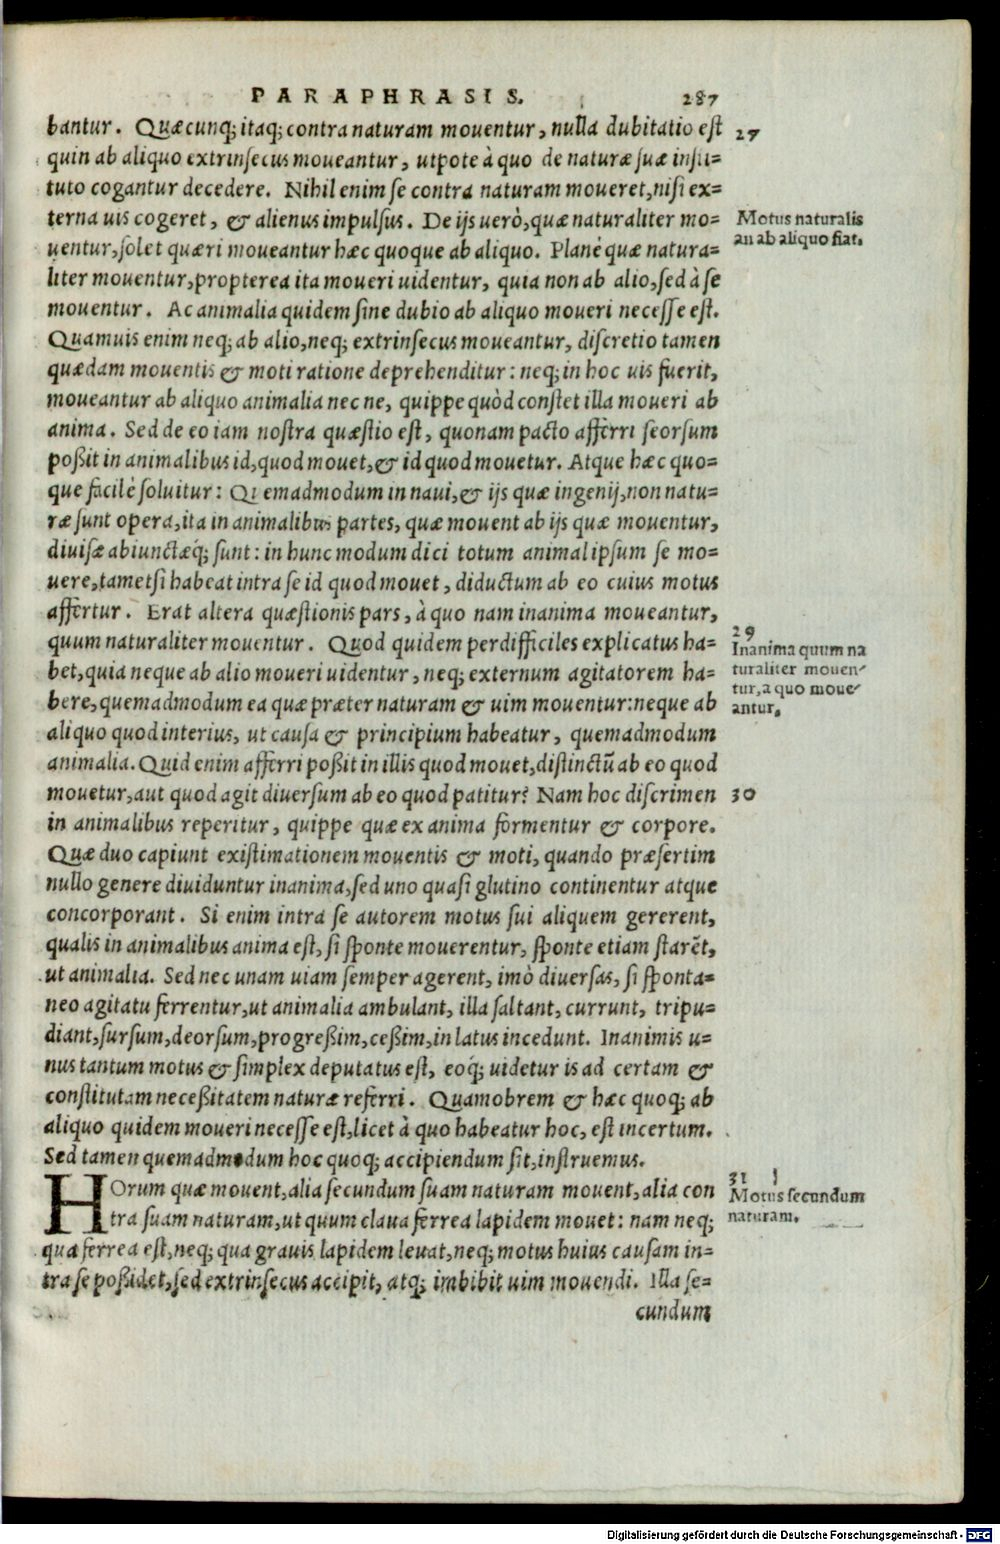 PARAPHRASIS. 287
bantur. Quæcunq; itaq; contra naturam mouentur, nulla dubitatio est 27
quin ab aliquo extrinsecus moueantur, utpote à quo de naturæ suæ insti=
tuto cogantur decedere. Nihil enim se contra naturam moueret, nisi ex=
terna uis cogeret, & alienus impulsus. De ijs uerò, quæ naturaliter mo=
uentur, solet quæri moueantur hæc quoque ab aliquo. Planè quæ natura=
liter mouentur, propterea ita moueri uidentur, quia non ab alio, sed à se
mouentur. Ac animalia quidem sine dubio ab aliquo moueri necesse est.
Quamuis enim neq; ab alio, neq; extrinsecus moueantur, discretio tamen
quædam mouentis & moti ratione deprehenditur: neq; in hoc uis fuerit,
moueantur ab aliquo animalia nec ne, quippe quòd constet illa moueri ab
anima. Sed de eo iam nostra quæstio est, quonam pacto afferri seorsum
poßit in animalibus id, quod mouet, & id quod mouetur. Atque hæc quo=
que facilè soluitur: Quemadmodum in naui, & ijs quæ ingenij, non natu=
ræ sunt opera, ita in animalibus partes, quæ mouent ab ijs quæ mouentur,
diuisæ abiunctæq́; sunt: in hunc modum dici totum animal ipsum se mo=
uere, tametsi habeat intra se id quod mouet, diductum ab eo cuius motus
affertur. Erat altera quæstionis pars, à quo nam inanima moueantur,
quum naturaliter mouentur. Quod quidem perdifficiles explicatus ha=
bet, quia neque ab alio moueri uidentur, neq; externum agitatorem ha=
bere, quemadmodum ea quæ præter naturam & uim mouentur: neque ab
aliquo quod interius, ut causa & principium habeatur, quemadmodum
animalia. Quid enim afferri poßit in illis quod mouet, distinctũ ab eo quod
mouetur, aut quod agit diuersum ab eo quod patitur? Nam hoc discrimen 30
in animalibus reperitur, quippe quæ ex anima formentur & corpore.
Quæ duo capiunt existimationem mouentis & moti, quando præsertim
nullo genere diuiduntur inanima, sed uno quasi glutino continentur atque
concorporant. Si enim intra se autorem motus sui aliquem gererent,
qualis in animalibus anima est, si sponte mouerentur, sponte etiam starẽt,
ut animalia. Sed nec unam uiam semper agerent, imò diuersas, si sponta=
neo agitatu ferrentur, ut animalia ambulant, illa saltant, currunt, tripu=
diant, sursum, deorsum, progreßim, ceßim, in latus incedunt. Inanimis u=
nus tantum motus & simplex deputatus est, eoq́; uidetur is ad certam &
constitutam neceßitatem naturæ referri. Quamobrem & hæc quoq; ab
aliquo quidem moueri necesse est, licet à quo habeatur hoc, est incertum.
Sed tamen quemadmodum hoc quoq; accipiendum sit, instruemus.
HOrum quæ mouent, alia secundum suam naturam mouent, alia con
tra suam naturam, ut quum claua ferrea lapidem mouet: nam neq;
qua ferrea est, neq; qua grauis lapidem leuat, neq; motus huius causam in=
tra se poßidet, sed extrinsecus accipit, atq; imbibit uim mouendi. Illa se=
cundum
Motus naturalis
an ab aliquo fiat.
29
Inanima quum na
turaliter mouen-
tur, a quo moue-
antur.
31
Motus secundum
naturam.
Digitalisierung gefördert durch die Deutsche Forschungsgemeinschaft - DFG